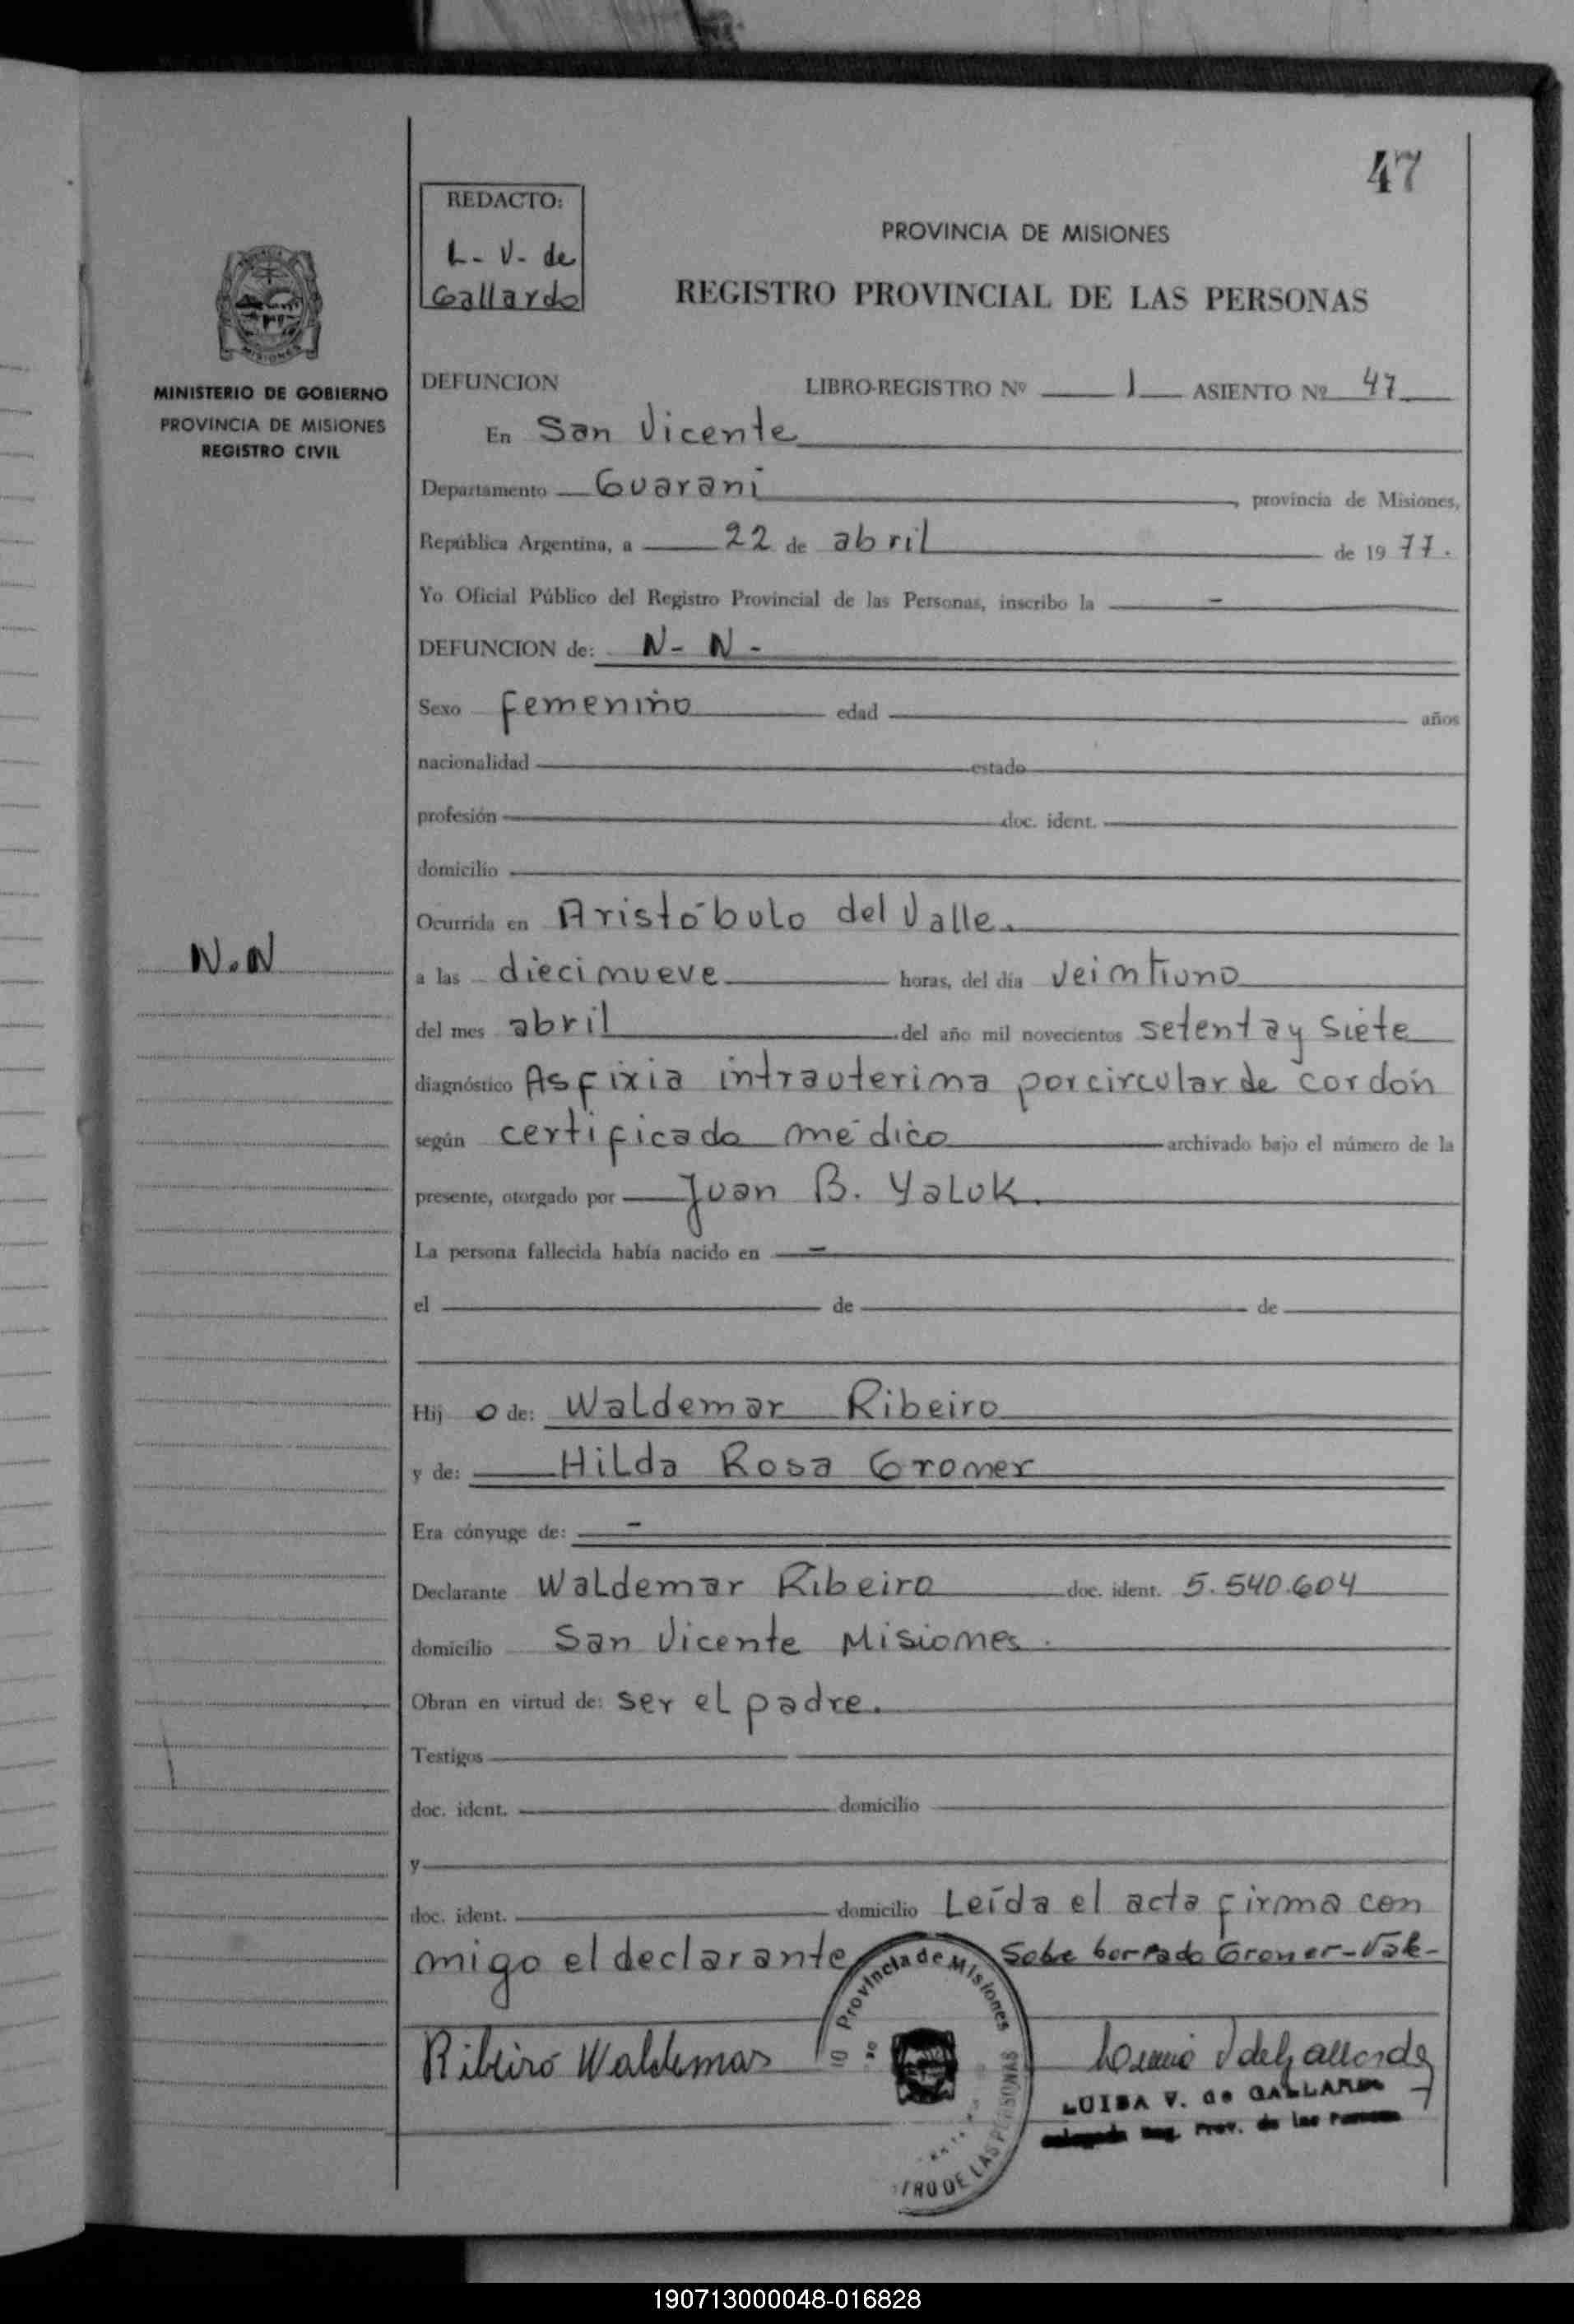 47
REDACTO:
L. V. de
Gallardo
PROVINCIA DE MISIONES
REGISTRO PROVINCIAL DE LAS PERSONAS
MISIONES
MINISTERIO DE GOBIERNO
PROVINCIA DE MISIONES
REGISTRO CIVIL
DEFUNCION LIBRO-REGISTRO Nº 1 ASIENTO Nº 47
En San Vicente
Departamento Guarani, provincia de Misiones,
República Argentina, a 22 de abril de 1977.
Yo Oficial Público del Registro Provincial de las Personas, inscribo la -
DEFUNCION de: N- N -
Sexo femenino edad años
nacionalidad estado
profesión doc. ident.
domicilio
Ocurrida en Aristóbulo del Valle.
N.N
a las diecinueve horas, del día veintiuno
del mes abril del año mil novecientos setenta y siete
diagnóstico Asfixia intrauterina por circular de cordón
según certificado médico archivado bajo el número de la
presente, otorgado por Juan B. Yaluk.
La persona fallecida había nacido en -
el de de
Hij o de: Waldemar Ribeiro
y de: Hilda Rosa Groner
Era cónyuge de: -
Declarante Waldemar Ribeiro doc. ident. 5.540.604
domicilio San Vicente Misiones.
Obran en virtud de: ser el padre.
Testigos
doc. ident. domicilio
y
doc. ident. domicilio Leída el acta firma con
migo el declarante Sobre borrado Groner-Vale-
Provincia de Misiones
Ribeiro Waldemar
LUISA V. de GALLARDO
Reg. Prov. de las Personas
DE LAS PERSONAS
190713000048-016828